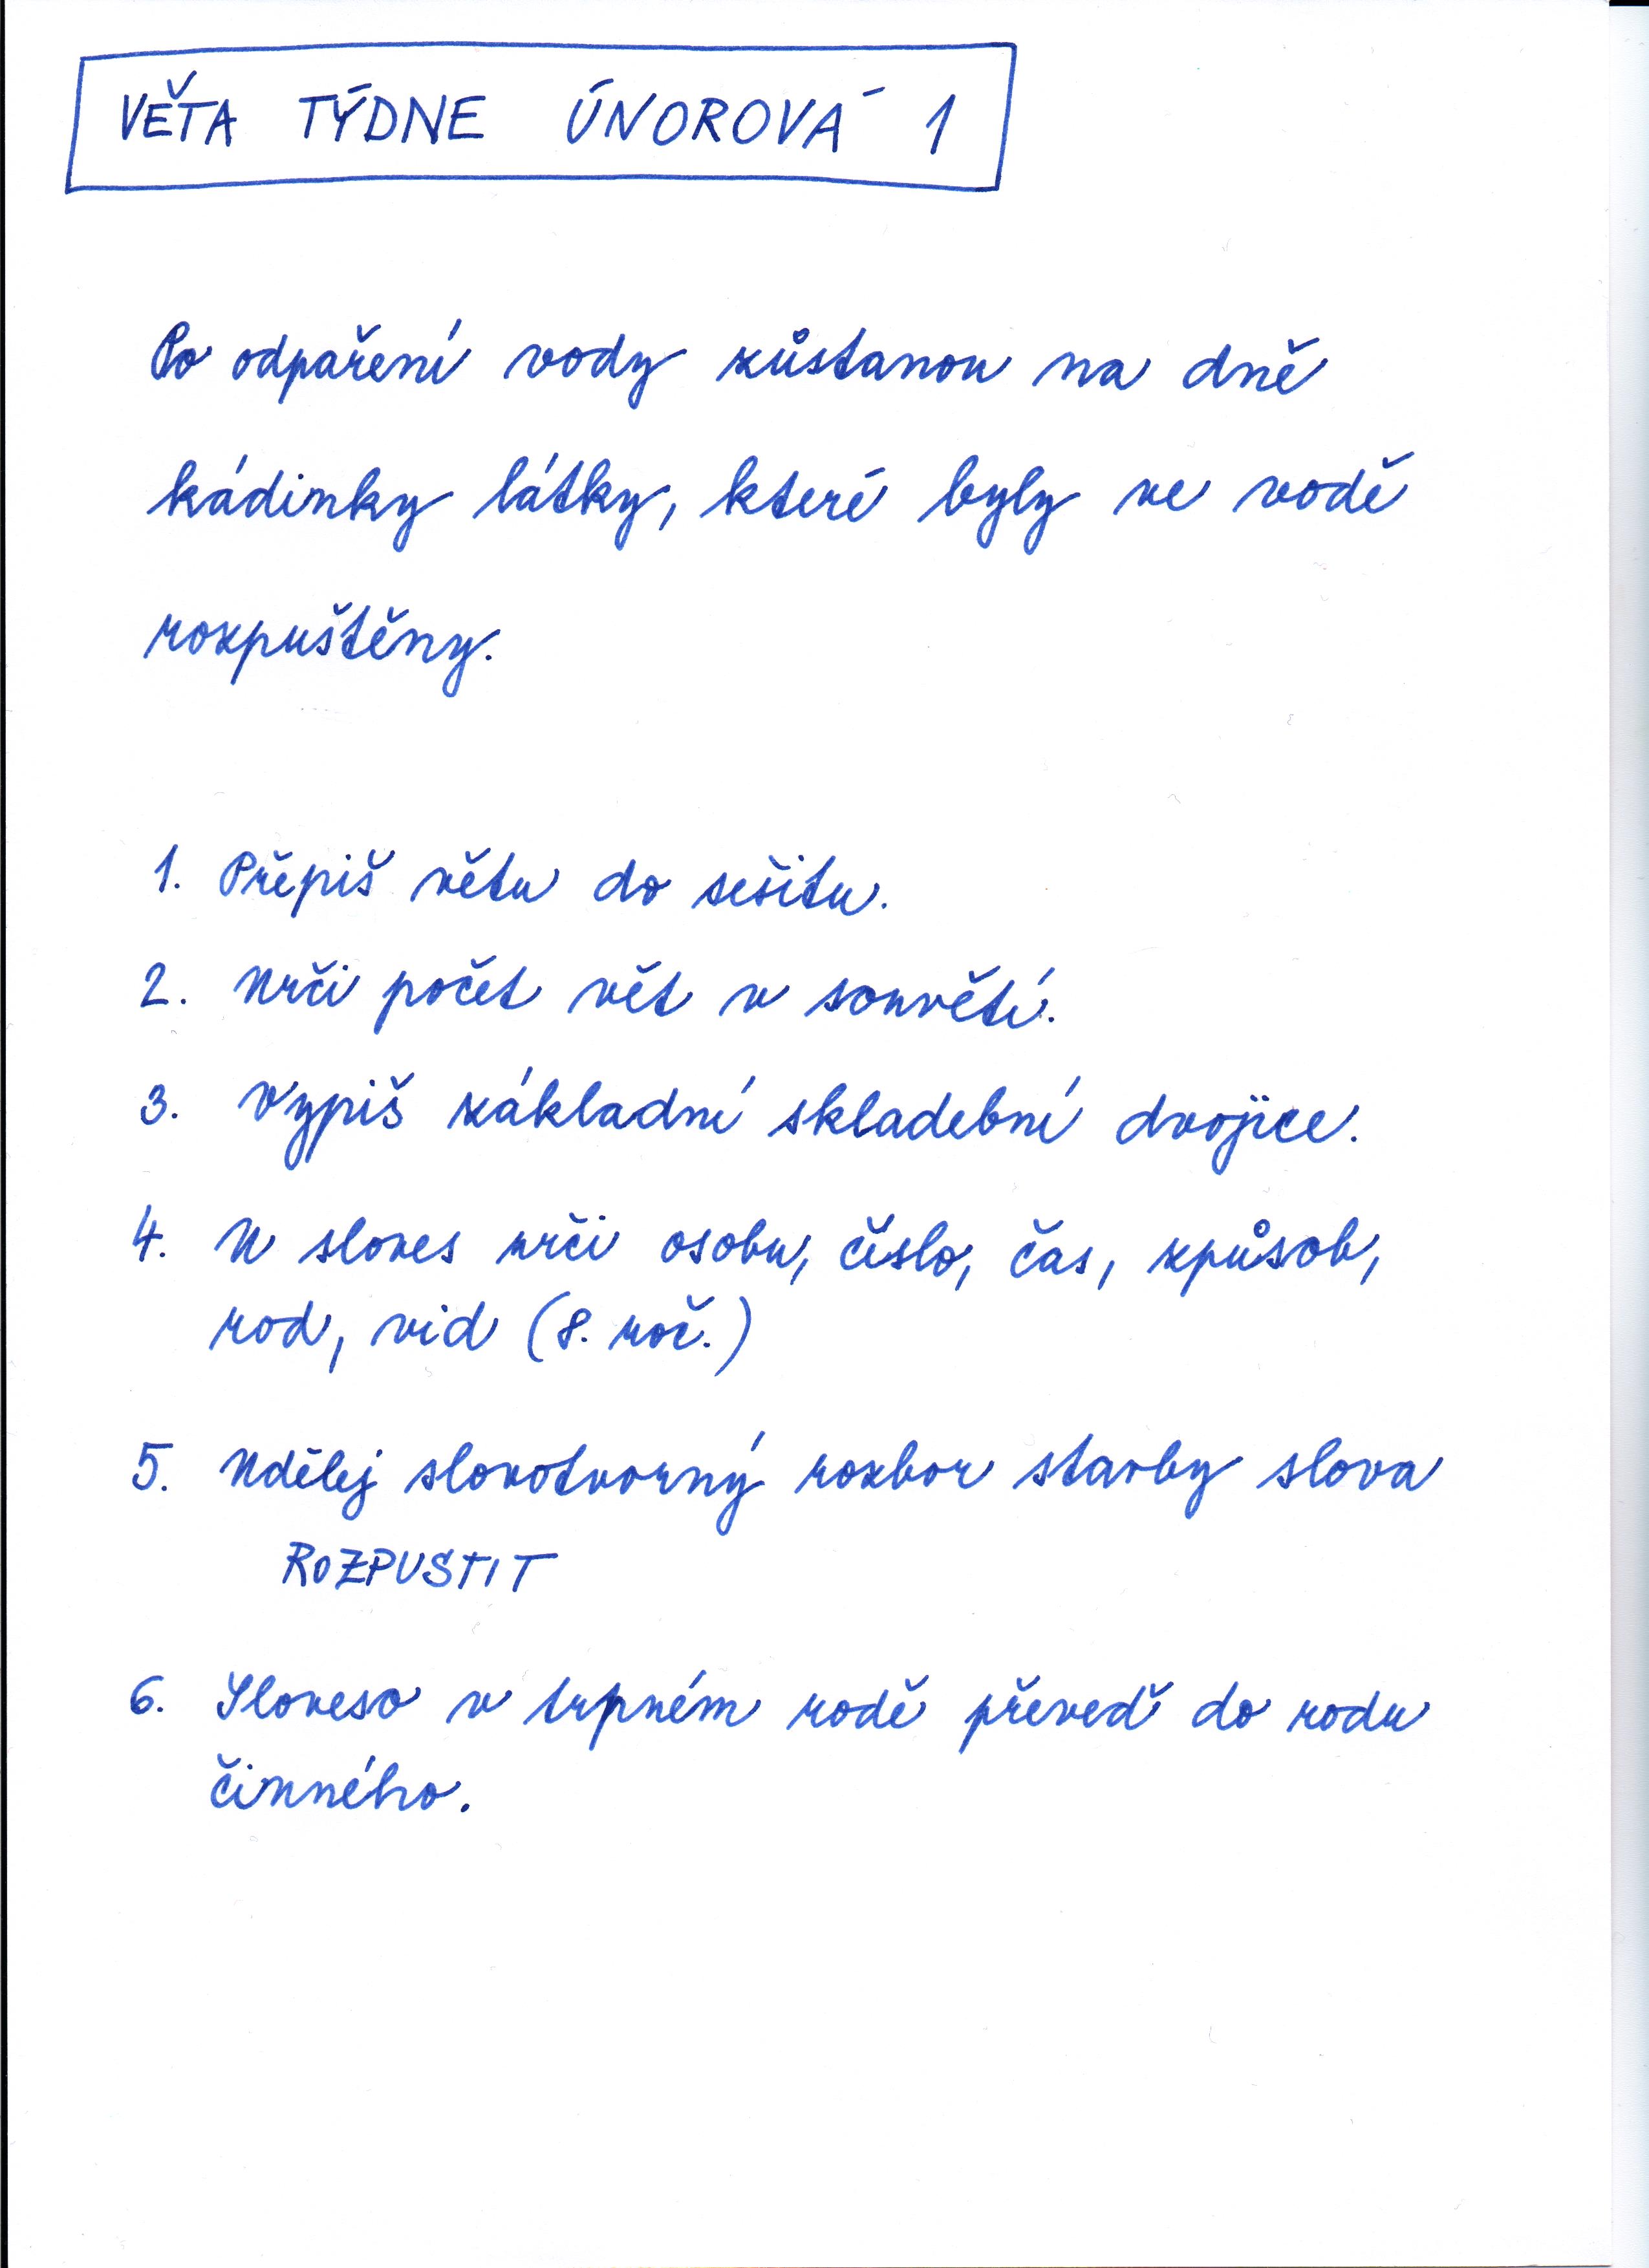 VĚTA TÝDNE ÚNOROVÁ 1
Po odpaření vody zůstanou na dně
kádinky látky, které byly ve vodě
rozpuštěny.
1. Přepiš větu do sešitu.
2. Urči počet vět v souvětí.
3. Vypiš základní skladební dvojice.
4. U sloves urči osobu, číslo, čas, způsob,
rod, vid (8. roč.)
5. Udělej slovotvorný rozbor stavby slova
ROZPUSTIT
6. Sloveso v trpném rodě převeď do rodu
činného.